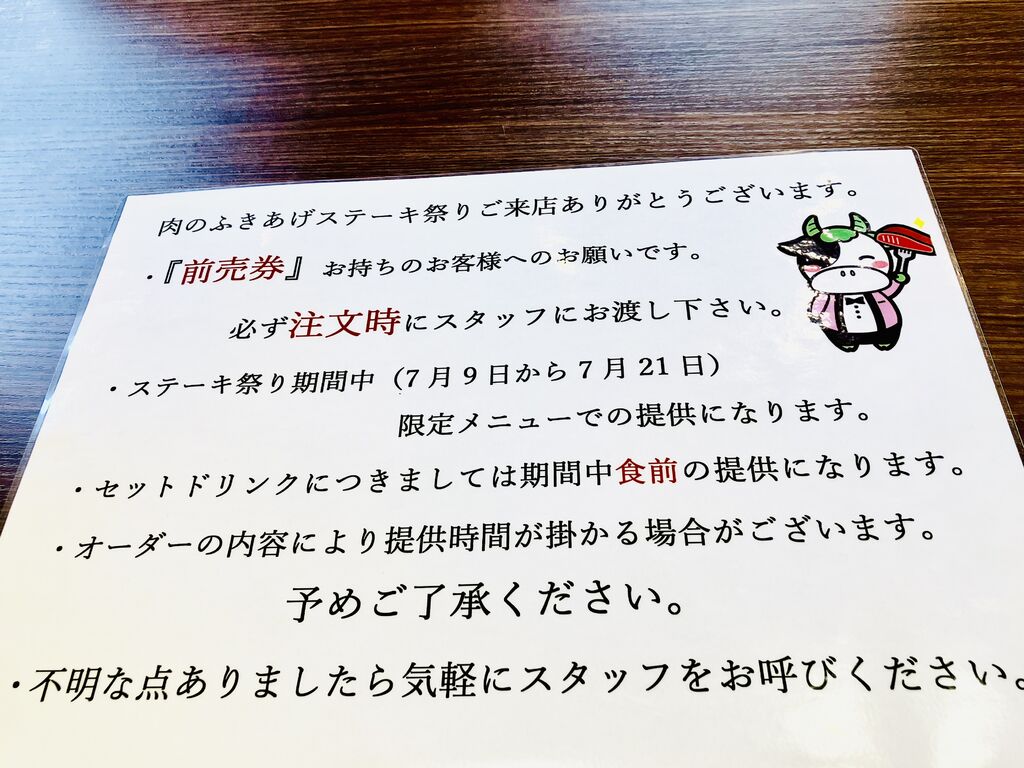 肉のふきあげステーキ祭りご来店ありがとうございます。
・『前売券』お持ちのお客様へのお願いです。
必ず注文時にスタッフにお渡し下さい。
・ステーキ祭り期間中（7月9日から7月21日）
限定メニューでの提供になります。
・セットドリンクにつきましては期間中食前の提供になります。
・オーダーの内容により提供時間が掛かる場合がございます。
予めご了承ください。
・不明な点ありましたら気軽にスタッフをお呼びください。